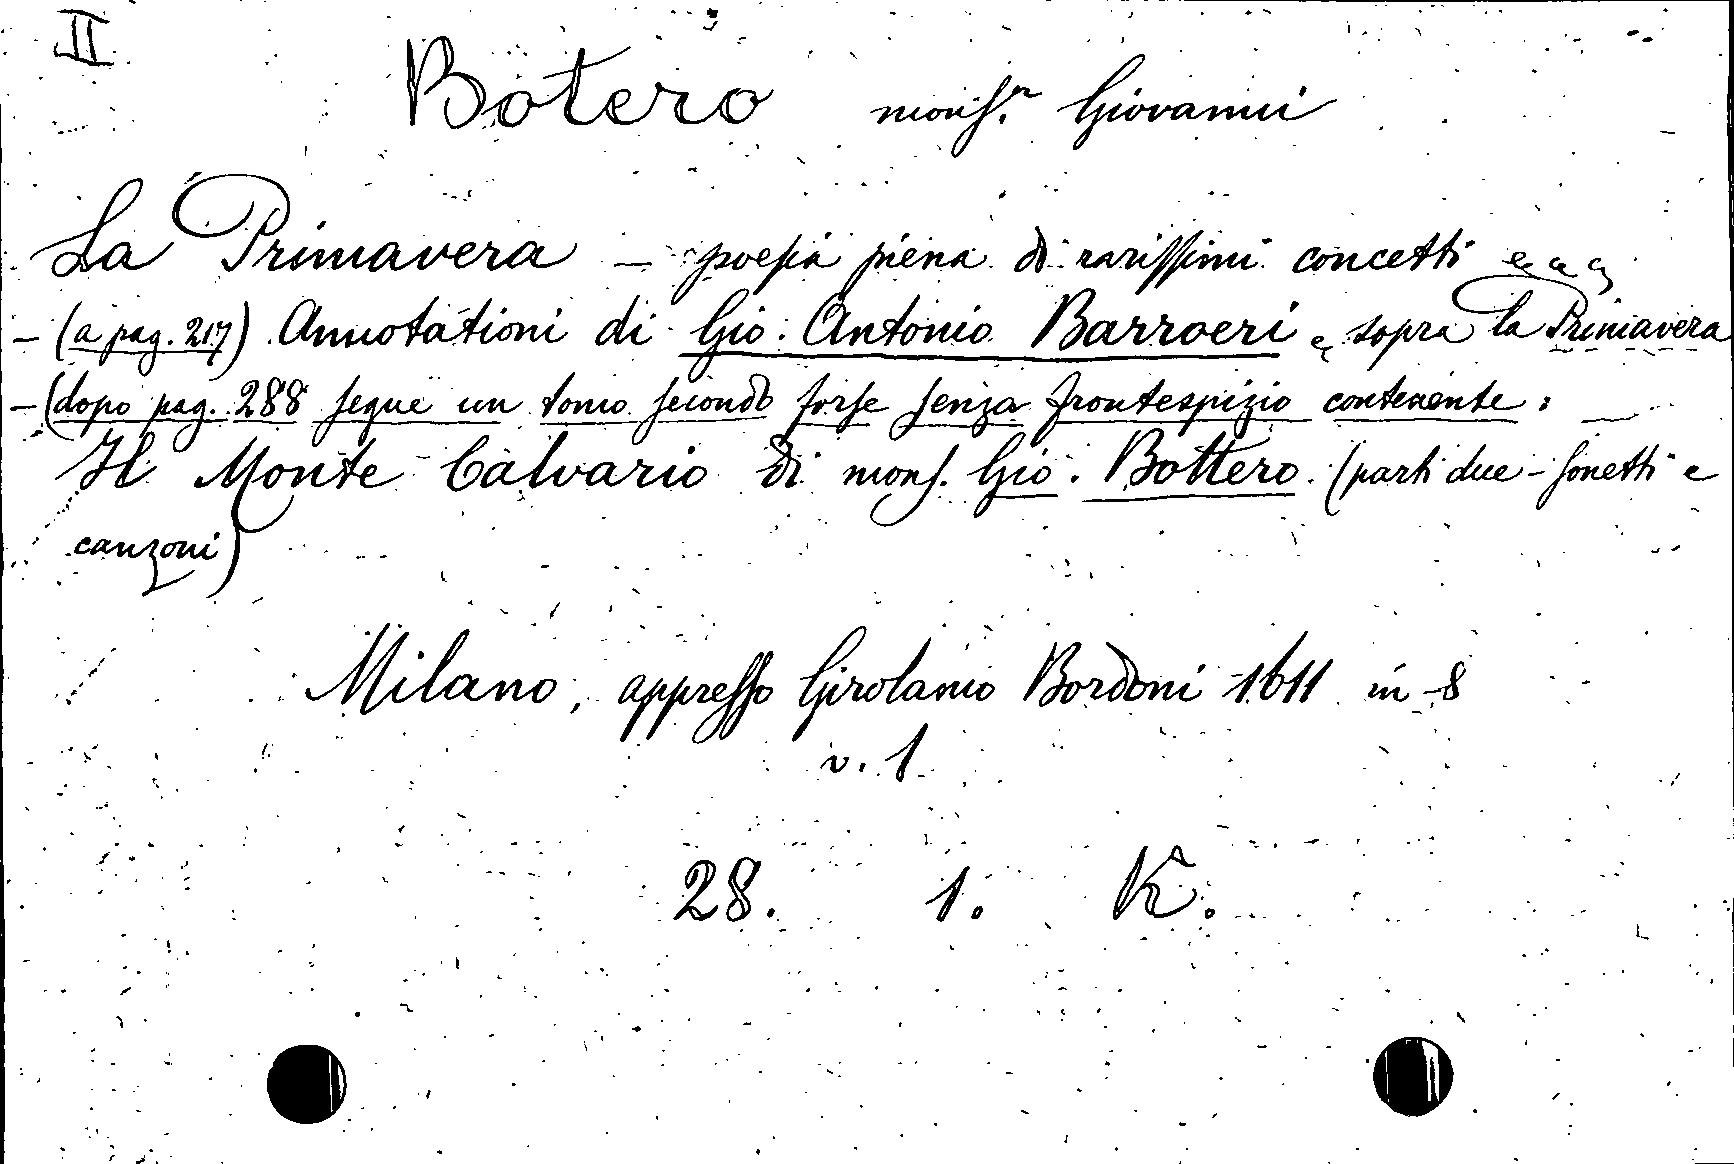 II
Botero monsr. Giovanni
La Primavera — poesia piena di rarissimi concetti
— (a pag. 217) Annotationi di Gio. Antonio Barroeri sopra la Primavera
— (dopo pag. 288 segue un tomo secondo forse senza frontespizio contenente:
Il Monte Calvario di mons. Gio. Bottero. (parti due - sonetti e
canzoni)
Milano, appresso Girolamo Bordoni 1611 in 8
v. 1
28. 1. K.